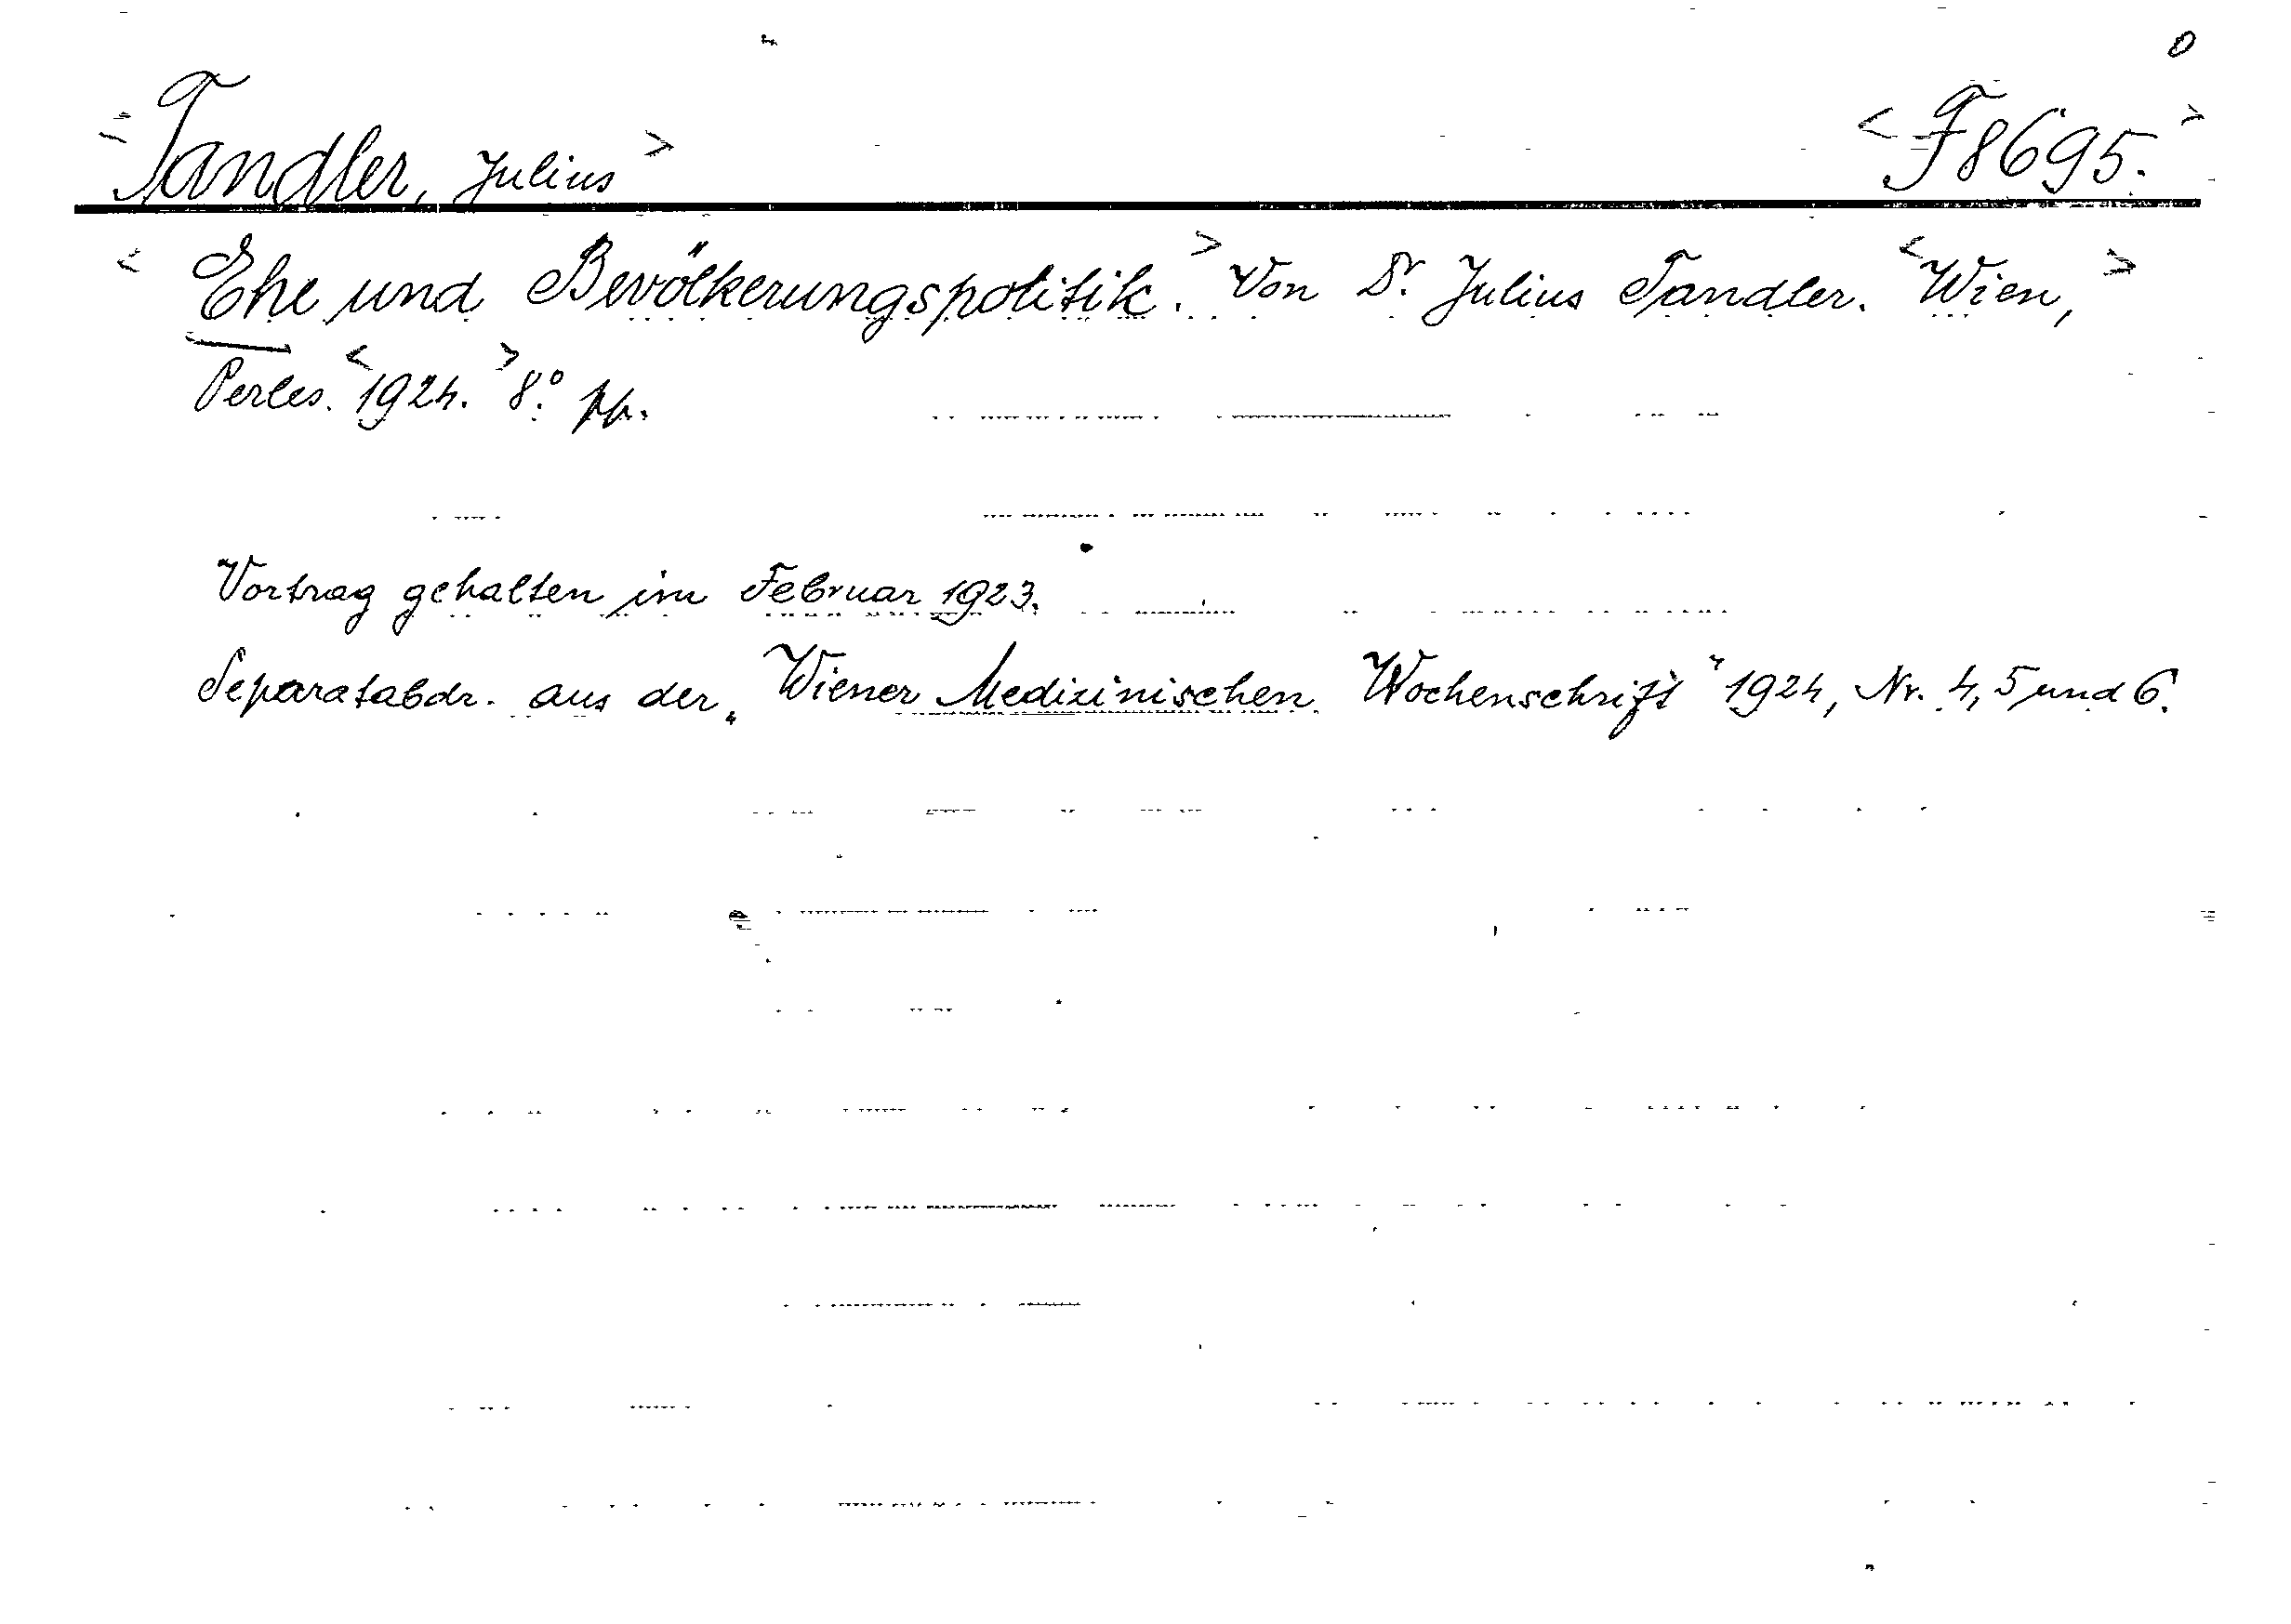 <Tandler, Julius> <F8695.>
<Ehe und Bevölkerungspolitik.> Von Dr. Julius Tandler. <Wien,>
Perles. <1924.> 8.° pp.
Vortrag gehalten im Februar 1923.
Separatabdr. aus der „Wiener Medizinischen Wochenschrift" 1924, Nr. 4, 5 und 6.